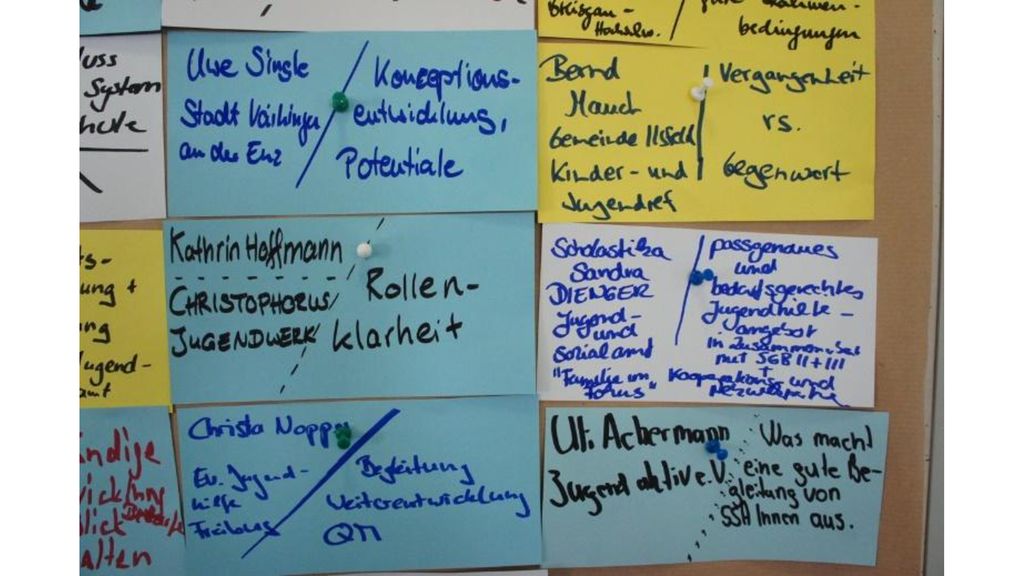 System
Uwe Single
Stadt Vaihingen
an der Enz
Konzeptions-
entwicklung,
Potentiale
Breisgau-
Hochschw.
gute Rahmen-
bedingungen
Bernd
Mauch
Gemeinde Ilsfeld
Kinder- und
Jugendref
Vergangenheit
vs.
Gegenwart
ung +
Jugend-
amt
Kathrin Hoffmann
CHRISTOPHORUS
JUGENDWERK
Rollen-
klarheit
Scholastika
Sandra
DIENGER
Jugend-
und
Sozialamt
"Familie im
Fokus"
passgenaues
und
bedarfsgerechtes
Jugendhilfe-
angebot
in Zusammenarbeit
mit SGB II + III
+
Kooperations und
ändige
alten
Christa Nopper
Ev. Jugend-
hilfe
Freiburg
Begleitung
Weiterentwicklung
QM
Uti Achermann
Jugend aktiv e.V.
Was macht
eine gute Be-
gleitung von
SSA Innen aus.